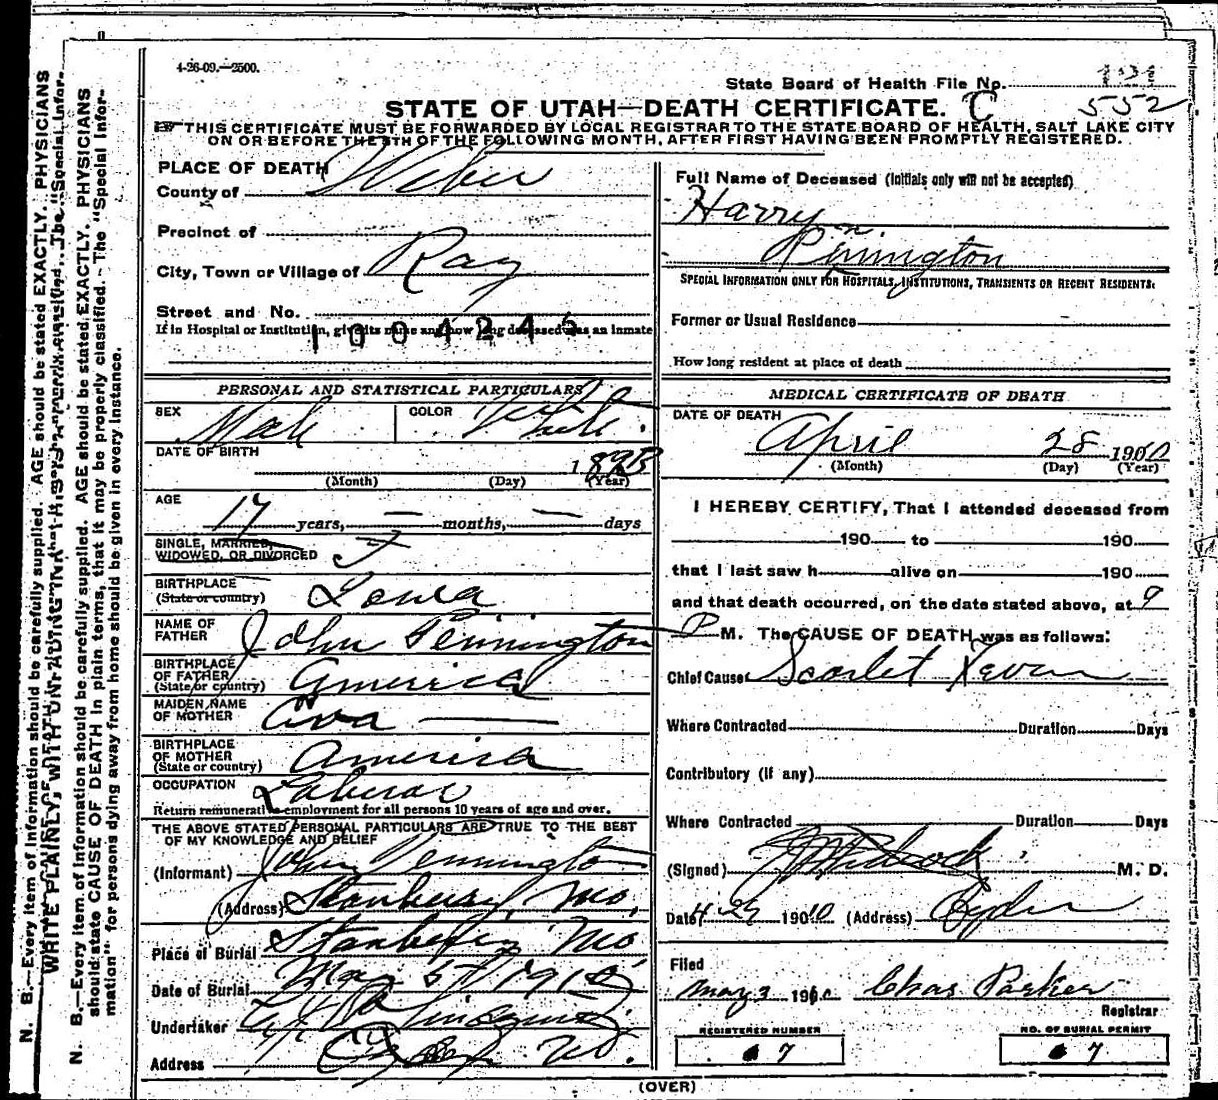 4-26-09.—2500.
State Board of Health File No.
STATE OF UTAH—DEATH CERTIFICATE. C 552
THIS CERTIFICATE MUST BE FORWARDED BY LOCAL REGISTRAR TO THE STATE BOARD OF HEALTH, SALT LAKE CITY
ON OR BEFORE THE 5TH OF THE FOLLOWING MONTH, AFTER FIRST HAVING BEEN PROMPTLY REGISTERED.
PLACE OF DEATH
County of Weber
Precinct of
City, Town or Village of Ray
Street and No.
If in Hospital or Institution, give its name and how long deceased was an inmate
1004245
Full Name of Deceased (Initials only will not be accepted)
Harry
Pennington
SPECIAL INFORMATION ONLY FOR HOSPITALS, INSTITUTIONS, TRANSIENTS OR RECENT RESIDENTS:
Former or Usual Residence
How long resident at place of death
PERSONAL AND STATISTICAL PARTICULARS
SEX Male COLOR White.
DATE OF BIRTH
1893
(Month) (Day) (Year)
AGE
17 years, — months, — days
SINGLE, MARRIED,
WIDOWED, OR DIVORCED
BIRTHPLACE
(State or country) Iowa
NAME OF
FATHER John Pennington
BIRTHPLACE
OF FATHER
(State or country) America
MAIDEN NAME
OF MOTHER Ava —
BIRTHPLACE
OF MOTHER
(State or country) America
OCCUPATION Laborer
Return remunerative employment for all persons 10 years of age and over.
THE ABOVE STATED PERSONAL PARTICULARS ARE TRUE TO THE BEST
OF MY KNOWLEDGE AND BELIEF
(Informant) John Pennington
(Address) Stanberry, Mo.
Place of Burial Stanberry Mo
Date of Burial May 5th 1910
Undertaker
Address Ogden Ut.
MEDICAL CERTIFICATE OF DEATH
DATE OF DEATH
April 28 1910
(Month) (Day) (Year)
I HEREBY CERTIFY, That I attended deceased from
190 to 190
that I last saw h alive on 190
and that death occurred, on the date stated above, at 9
P M. The CAUSE OF DEATH was as follows:
Chief Cause Scarlet Fever
Where Contracted Duration Days
Contributory (if any)
Where Contracted Duration Days
(Signed) M. D.
Date 4-29 1910 (Address) Ogden
Filed
May 3 1910 Chas Parker
Registrar
REGISTERED NUMBER
67
NO. OF BURIAL PERMIT
67
(OVER)
N. B.—Every item of information should be carefully supplied. AGE should be stated EXACTLY. PHYSICIANS
should state CAUSE OF DEATH in plain terms, that it may be properly classified. The "Special Infor-
mation" for persons dying away from home should be given in every instance.
WRITE PLAINLY, WITH UNFADING INK